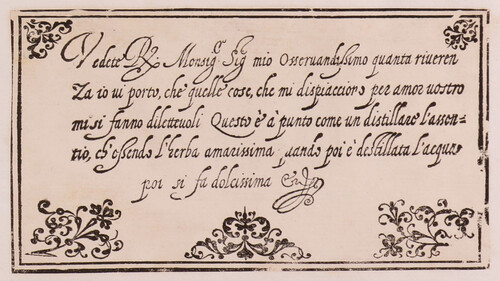 Vedete R. Monsig.r Sig. mio Osseruandissimo quanta riueren
Za io ui porto, che quelle cose, che mi dispiacciono per amor uostro
mi si fanno diletteuoli. Questo è à punto come un distillare l'assen-
tio, ch'essendo l'herba amarissima quando poi è destillata l'acqua
poi si fa dolcissima